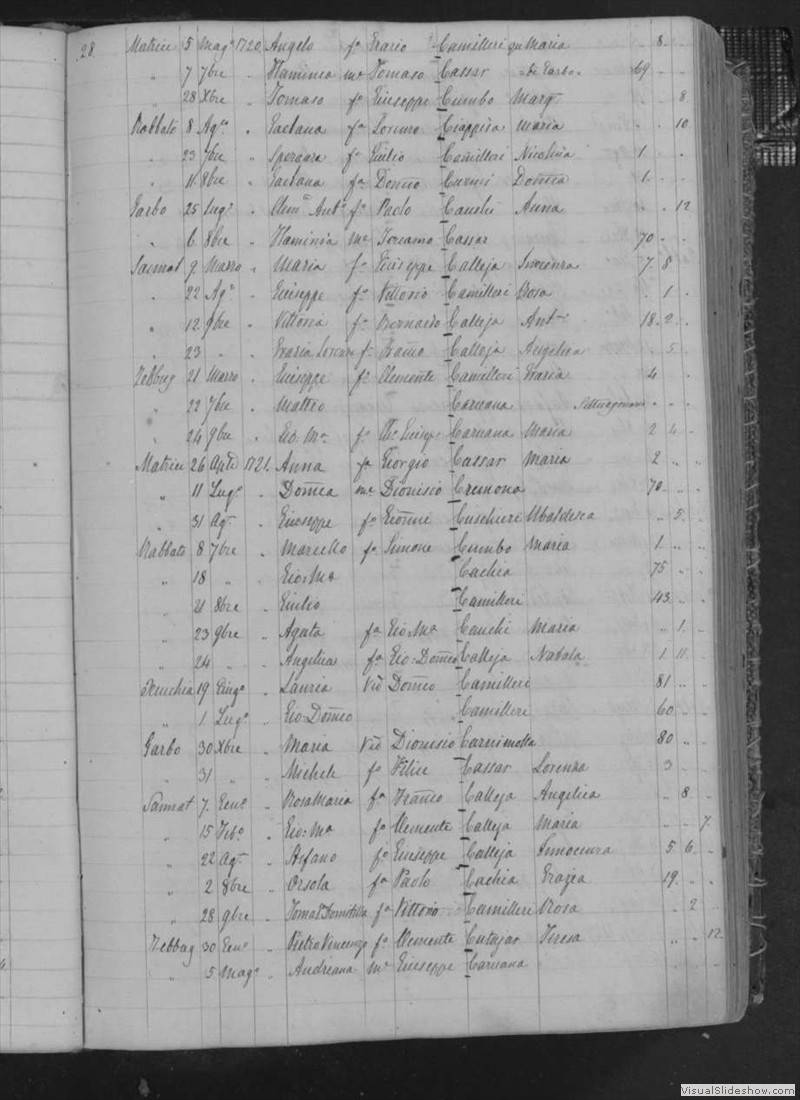 28. Matrice 5 Mag° 1720 Angelo fo Grazio Camilleri qu Maria . 8 .
" 7 7bre " Flaminea mo Tomaso Cassar di Garbo 69 . .
" 28 Xbre " Tomaso fo Giuseppe Cumbo Marg. . . 8
Rabbato 8 Ag° " Gaetana fa Lorenzo Ciappisa Maria . . 10
" 23 7bre " Speranza fa Giulio Camilleri Nicolina 1 . .
" 11 8bre " Gaetana fa Domco Domca 1 . .
Garbo 25 Lug° " Clemo Anto fo Paolo Cauchi Anna . . 12
" 6 8bre " Flaminia mo Cassar 70 . .
Sannat 9 Marzo " Maria fa Giuseppe Calleja Inocenza 7 8
" 22 Ag° " Giuseppe fo Vittorio Camilleri Rosa . 1 .
" 12 9bre " Vittoria fa Bernardo Calleja Anta 18 2 .
" 23 " " Grazia Lorenza fa Franco Calleja Angelica . 5 .
Zebbug 21 Marzo " Giuseppe fo Clemente Camilleri Grazia 4 .
" 22 7bre " Matteo Caruana Settuagenario . . .
" 24 9bre " Gio. Ma fo Giusep Caruana Maria 2 4 .
Matrice 26 Aple 1721. Anna fa Giorgio Cassar Maria 2 " "
" 11 Lug° " Domca mo Dionisio Cremona 70. . .
" 31 Ag° " Giuseppe fo Gionni Cuschieri Ubaldesca " 5 .
Rabbato 8 7bre " Marcello fo Simone Cumbo Maria 1 . "
" 18 " " Gio: Ma Cachia 75 " .
" 21 8bre " Giulio Camilleri 43. . .
" 23 9bre " Agata fa Gio: Ma Cauchi Maria " 1. .
" 24 " " Angelica fa Gio: Domco Calleja Natala 1 11. .
Xeuchia 19 Giug° " Lauria Va Domco Camilleri 81 " .
" 1 Lug° " Gio Domco Camilleri 60 . .
Garbo 30 Xbre " Maria Va Dionisio Carnimolla 80 " .
" 31 " " Michele fo Felice Cassar Lorenza 3 . .
Sannat 7. Gen° " Rosa Maria fa Franco Calleja Angelica . 8 .
" 15 Feb° " Gio: Ma fo Clemente Calleja Maria . . 7.
" 22 Ag° " Stefano fo Giuseppe Calleja Innocenza 5 6 .
" 2 8bre " Orsola fa Paolo Cachia Grazia 19. . .
" 28 9bre " Domitilla fa Vittorio Camilleri Rosa . 2 .
Zebbug 30 Gen° " Pietro Vincenzo fo Clemente Cutajar Teresa " " 12
" 5 Mag° " Andreana mo Giuseppe Caruana . . .
VisualSlideshow.com